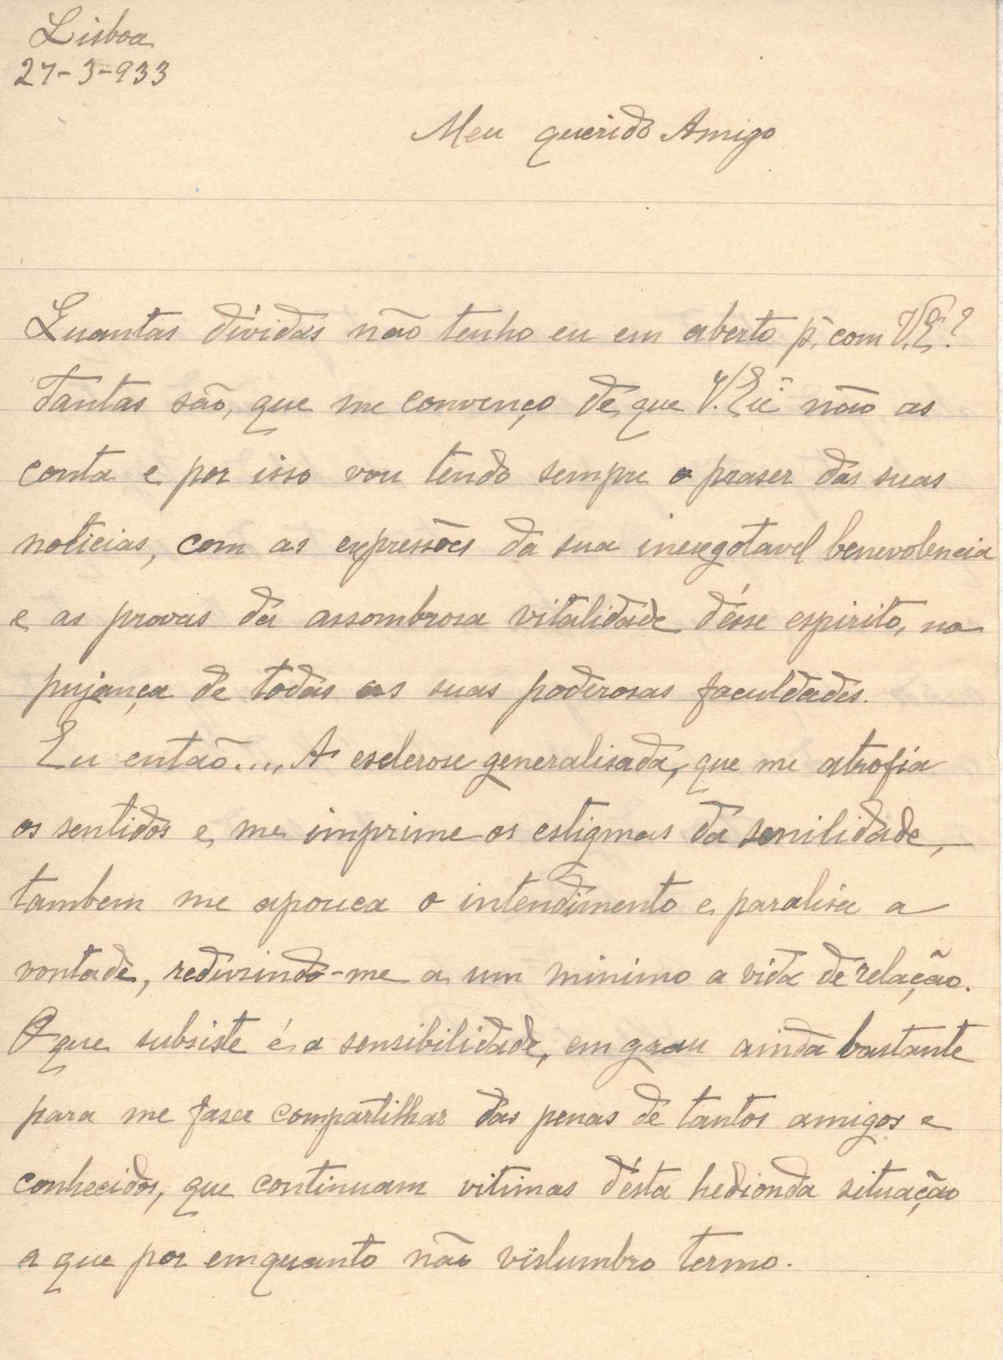 Lisboa
27-3-933
Meu querido Amigo
Quantas dividas não tenho eu em aberto p. com V.Ex.ª?
Tantas são, que me convenço de que V. Ex.ª não as
conta e por isso vou tendo sempre o praser das suas
noticias, com as expressões da sua inexgotavel benevolencia
e as provas da assombrosa vitalidade désse espirito, na
pujança de todas as suas poderosas faculdades.
Eu então.... A esclerose generalisada, que me atrofia
os sentidos e me imprime os estigmas da senilidade,
tambem me apouca o intendimento e paralisa a
vontade, redusindo-me a um minimo a vida de relação.
O que subsiste é a sensibilidade, em grau ainda bastante
para me faser compartilhar das penas de tantos amigos e
conhecidos, que continuam vitimas désta hedionda situação
a que por emquanto não vislumbro termo.